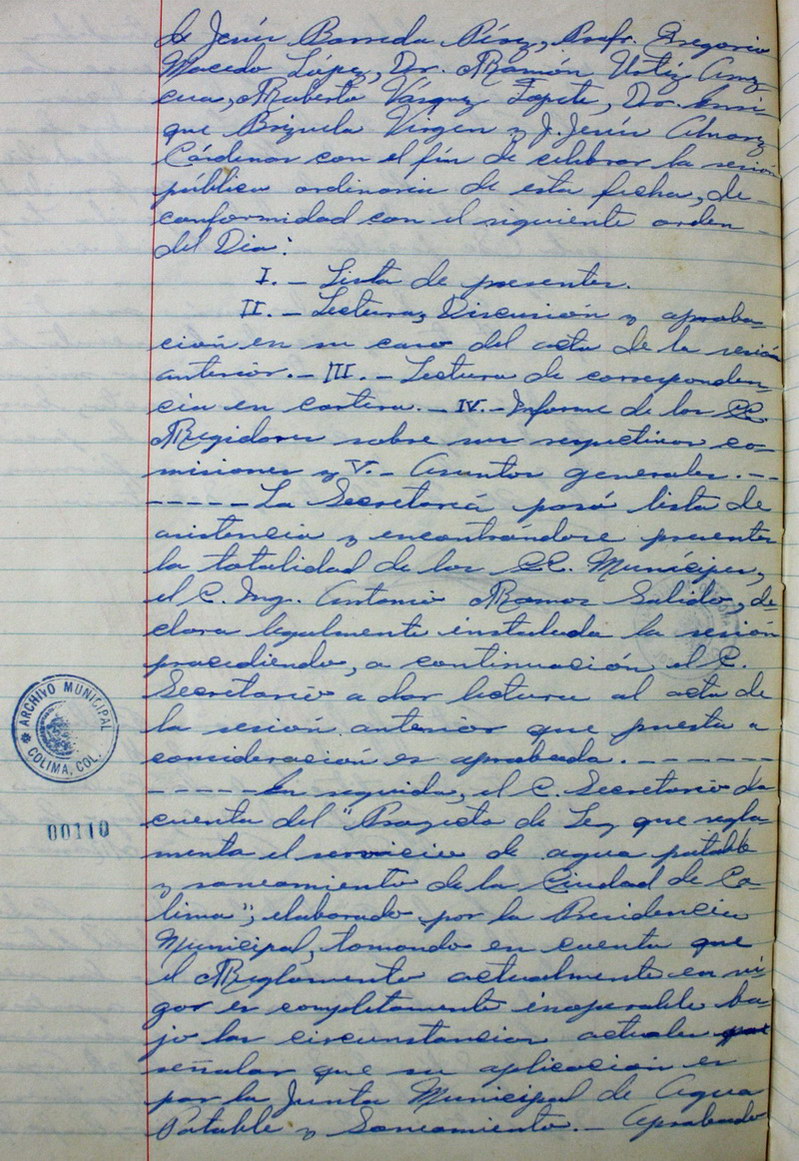 de Jesús Barreda Pérez, Profr. Gregorio
Macedo López, Dr. Ramón Ortiz Amez
cua, Roberto Vázquez Zapete, Dr. Enri
que Brizuela Virgen y J. Jesús Alvarez
Cárdenas con el fin de celebrar la sesión
pública ordinaria de esta fecha, de-
conformidad con el siguiente orden
del Día:
I.- Lista de presentes.
II.- Lectura, Discusión y aproba-
ción en su caso del acta de la sesión
anterior.- III.- Lectura de corresponden-
cia en cartera.- IV.- Informe de los CC.
Regidores sobre sus respectivas co-
misiones y V.- Asuntos generales.--
-----La Secretaría pasó lista de
asistencia y encontrándose presentes
la totalidad de los CC. Munícipes,
el C. Ing. Antonio Ramos Salido, de-
clara legalmente instalada la sesión
procediendo, a continuación el C.
Secretario a dar lectura al acta de
la sesión anterior que puesta a
consideración es aprobada.------
-----En seguida, el C. Secretario da
cuenta del "Proyecto de Ley que regla
menta el servicio de agua potable
y saneamiento de la Ciudad de Co-
lima", elaborado por la Presidencia
Municipal, tomando en cuenta que
el Reglamento actualmente en vi-
gor es completamente inoperable ba-
jo las circunstancias actuales
señalar que su aplicación es
por la Junta Municipal de Agua
Potable y Saneamiento.- Aprobado
ARCHIVO MUNICIPAL
COLIMA, COL.
00110